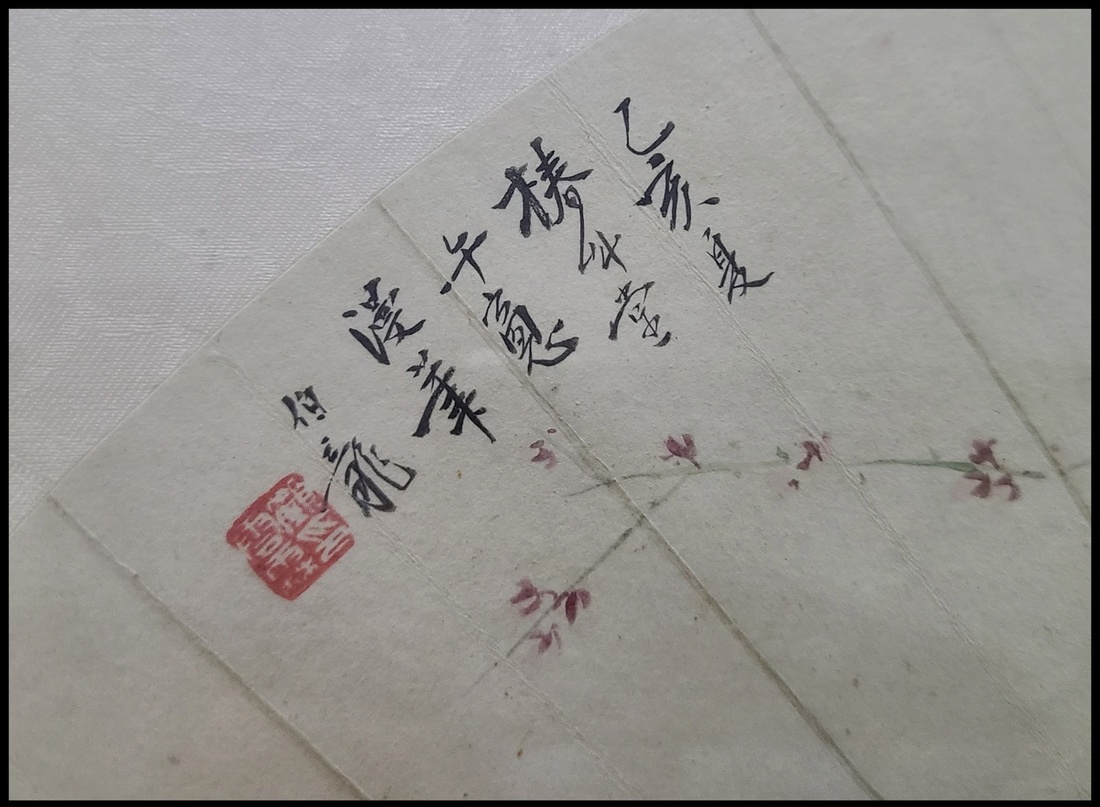 乙亥夏
椿年堂
午窗
漫筆
伯龍